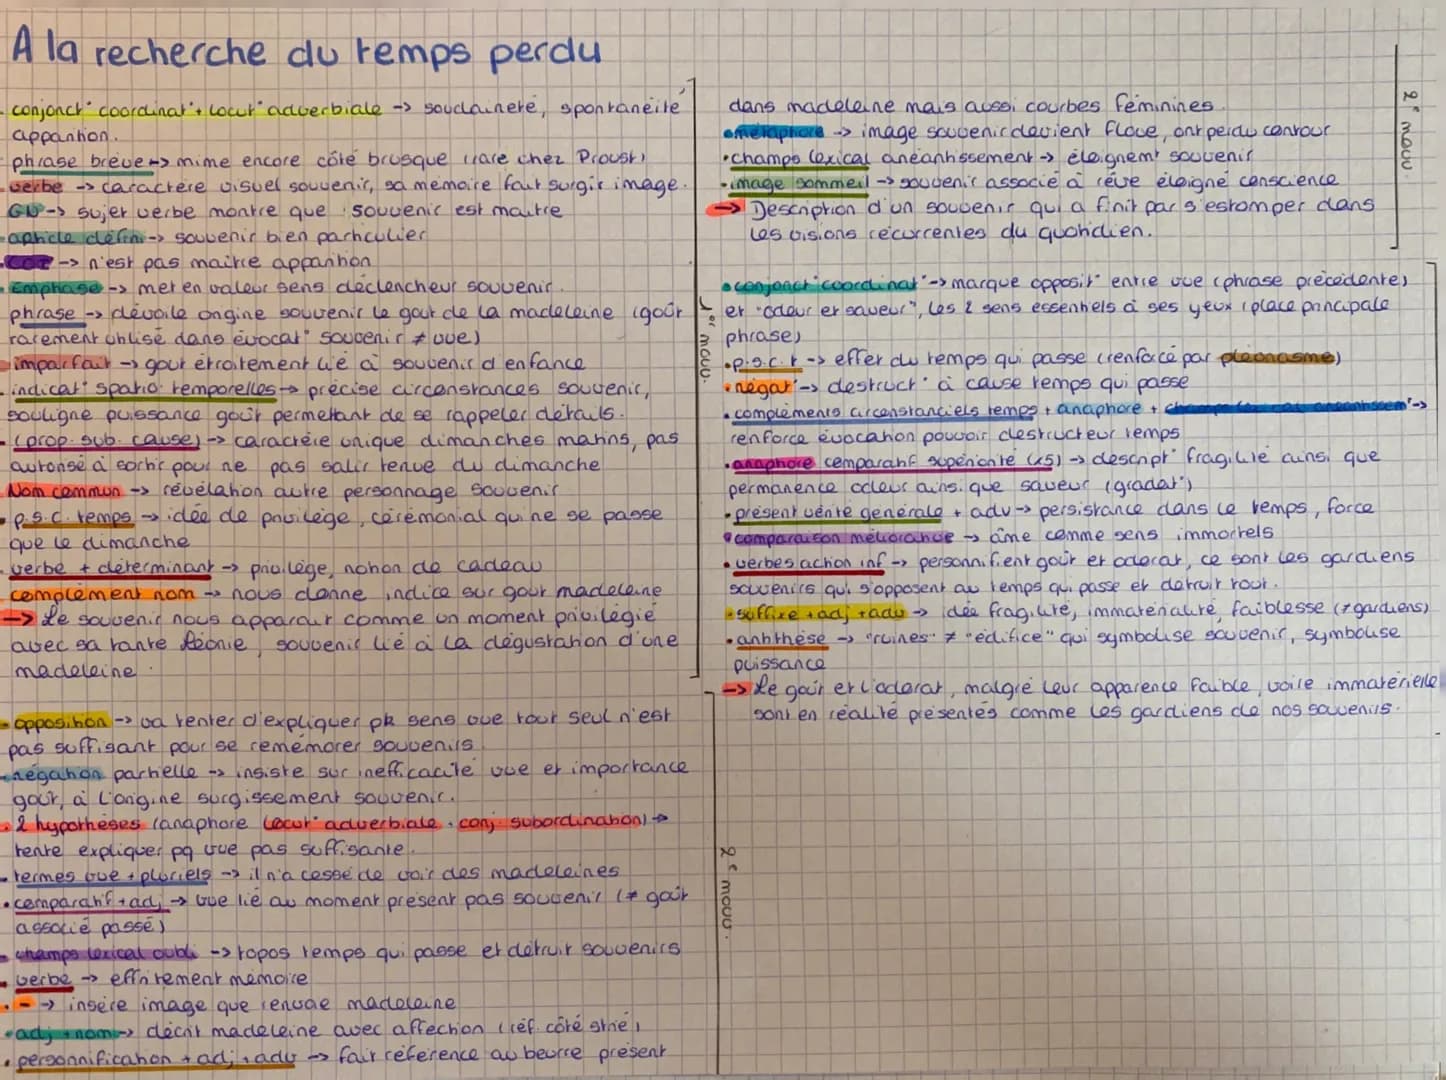 A la recherche du temps perdu
- conjonct° coordinat° + locut° adverbiale -> soudaineté, spontanéité
apparition.
phrase brève -> mime encore côté brusque (rare chez Proust)
- verbe -> caractère visuel souvenir, sa mémoire fait surgir image.
GN -> sujet verbe montre que souvenir est maître
- article défini -> souvenir bien particulier
- COI -> n'est pas maître apparition
- Emphase -> met en valeur sens déclencheur souvenir.
phrase -> dévoile origine souvenir le goût de la madeleine (goût
rarement utilisé dans évocat° souvenir ≠ vue)
- imparfait -> goût étroitement lié à souvenir d'enfance
- indicat° spatio temporelles -> précise circonstances souvenir,
souligne puissance goût permettant de se rappeler détails.
- (prop. sub. cause) -> caractère unique dimanches matins, pas
autorisé à sortir pour ne pas salir tenue du dimanche
Nom commun -> révélation autre personnage souvenir
• p.s.c. temps -> idée de privilège, cérémonial qui ne se passe
que le dimanche
- verbe + déterminant -> privilège, notion de cadeau
complément nom -> nous donne indice sur goût madeleine
-> Le souvenir nous apparaît comme un moment privilégié
avec sa tante Léonie, souvenir lié à la dégustation d'une
madeleine.
1er mouv.
- opposition -> va tenter d'expliquer pk sens vue tout seul n'est
pas suffisant pour se remémorer souvenirs
- négation partielle -> insiste sur inefficacité vue et importance
goût, à l'origine surgissement souvenir.
• 2 hypothèses (anaphore locut° adverbiale + conj. subordination) ->
tente expliquer pq vue pas suffisante.
- termes vue + pluriels -> il n'a cessé de voir des madeleines
• comparatif + adj -> vue lié au moment présent pas souvenir (≠ goût
associé passé)
- champs lexical oubli -> topos temps qui passe et détruit souvenirs
• verbe -> effritement mémoire
• - -> insère image que renvoie madeleine
• adj + nom -> décrit madeleine avec affection (réf. côté strié)
• personnification + adj + adv -> fait référence au beurre présent
2e mouv.
dans madeleine mais aussi courbes féminines.
• métaphore -> image souvenir devient floue, ont perdu contour
• champs lexical anéantissement -> éloignemt souvenir
• image sommeil -> souvenir associé à rêve éloigné conscience
-> Description d'un souvenir qui a finit par s'estomper dans
les visions récurrentes du quotidien.
2e mouv.
• conjonct° coordinat° -> marque opposit° entre vue (phrase précédente)
et "odeur et saveur", les 2 sens essentiels à ses yeux (place principale
phrase)
• p.s.c.t -> effet du temps qui passe (renforcé par pléonasme)
• négat° -> destruct° à cause temps qui passe
• compléments circonstanciels temps + anaphore + champs lexical anéantissem° ->
renforce évocation pouvoir destructeur temps
• anaphore comparatif supériorité (x5) -> descript° fragilité ainsi que
permanence odeur ainsi que saveur (gradat°)
• présent vérité générale + adv -> persistance dans le temps, force
• comparaison méliorative -> âme comme sens immortels
• verbes action inf -> personnifient goût et odorat, ce sont les gardiens
souvenirs qui s'opposent au temps qui passe et détruit tout.
• suffixe + adj + adv -> idée fragilité, immatérialité, faiblesse (≠ gardiens)
• antithèse -> "ruines" ≠ "édifice" qui symbolise souvenir, symbolise
puissance
-> Le goût et l'odorat, malgré leur apparence faible, voire immatérielle
sont en réalité présentés comme les gardiens de nos souvenirs.